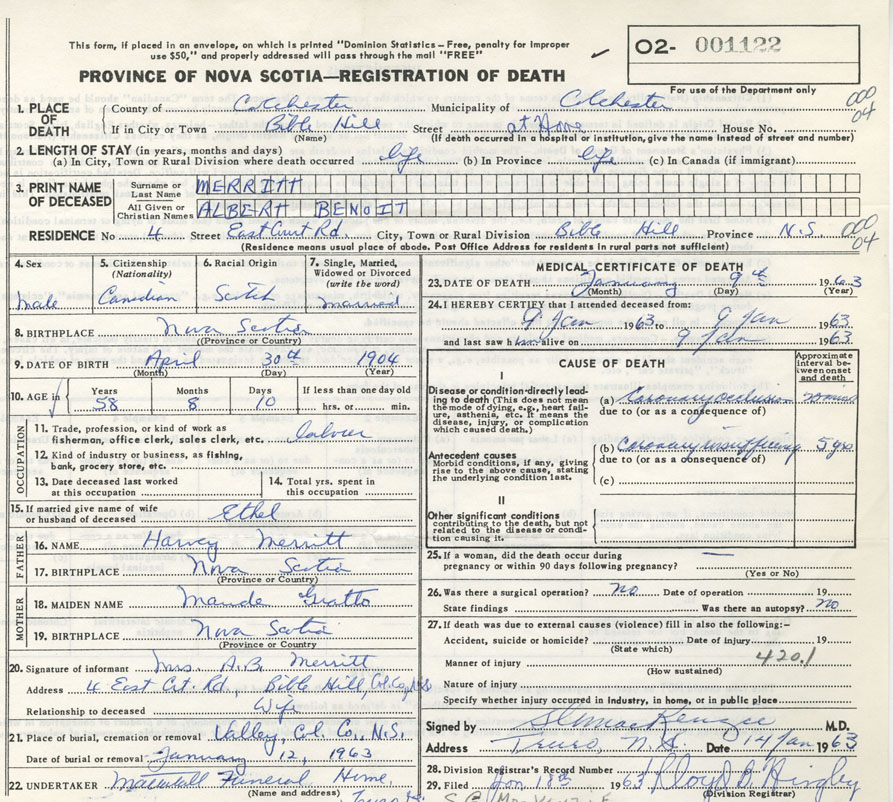 This form, if placed in an envelope, on which is printed "Dominion Statistics – Free, penalty for Improper
use $50," and properly addressed will pass through the mail "FREE"
O2- 001122
PROVINCE OF NOVA SCOTIA—REGISTRATION OF DEATH
For use of the Department only
000
04
1. PLACE OF DEATH
County of Colchester Municipality of Colchester
If in City or Town Bible Hill Street at Home House No.
(Name) (If death occurred in a hospital or institution, give the name instead of street and number)
2. LENGTH OF STAY (in years, months and days)
(a) In City, Town or Rural Division where death occurred life (b) In Province life (c) In Canada (if immigrant)
3. PRINT NAME OF DECEASED
Surname or Last Name MERRITT
All Given or Christian Names ALBERT BENOIT
RESIDENCE No 4 Street East Court Rd. City, Town or Rural Division Bible Hill Province N.S.
000
04
(Residence means usual place of abode. Post Office Address for residents in rural parts not sufficient)
4. Sex
male
5. Citizenship
(Nationality)
Canadian
6. Racial Origin
Scotch
7. Single, Married,
Widowed or Divorced
(write the word)
married
8. BIRTHPLACE Nova Scotia
(Province or Country)
9. DATE OF BIRTH April 30th 1904
(Month) (Day) (Year)
10. AGE in
Years Months Days If less than one day old
58 8 10 hrs. or min.
OCCUPATION
11. Trade, profession, or kind of work as
fisherman, office clerk, sales clerk, etc. labourer
12. Kind of industry or business, as fishing,
bank, grocery store, etc.
13. Date deceased last worked
at this occupation
14. Total yrs. spent in
this occupation
15. If married give name of wife
or husband of deceased Ethel
FATHER
16. NAME Harvey Merritt
17. BIRTHPLACE Nova Scotia
(Province or Country)
MOTHER
18. MAIDEN NAME Maude Gratto
19. BIRTHPLACE Nova Scotia
(Province or Country
20. Signature of informant Mrs. A.B. Merritt
Address 4 East Crt. Rd., Bible Hill, Col. Co., N.S.
Relationship to deceased Wife
21. Place of burial, cremation or removal Valley, Col. Co., N.S.
Date of burial or removal January 12, 1963
22. UNDERTAKER Mattatall Funeral Home,
(Name and address)
MEDICAL CERTIFICATE OF DEATH
23. DATE OF DEATH January 9th 1963
(Month) (Day) (Year)
24. I HEREBY CERTIFY that I attended deceased from:
9 Jan 1963 to 9 Jan 1963
and last saw him alive on 9 Jan 1963
CAUSE OF DEATH
Approximate
interval between
onset
and death
I
Disease or condition directly lead-
ing to death (This does not mean
the mode of dying, e.g., heart fail-
ure, asthenia, etc. It means the
disease, injury, or complication
which caused death.)
(a) Coronary occlusion
due to (or as a consequence of)
Antecedent causes
Morbid conditions, if any, giving
rise to the above cause, stating
the underlying condition last.
(b) Coronary insufficiency 5 yrs
due to (or as a consequence of)
(c)
II
Other significant conditions
contributing to the death, but not
related to the disease or condi-
tion causing it.
25. If a woman, did the death occur during
pregnancy or within 90 days following pregnancy? —
(Yes or No)
26. Was there a surgical operation? no Date of operation 19
State findings Was there an autopsy? no
27. If death was due to external causes (violence) fill in also the following:-
Accident, suicide or homicide? Date of injury 19
(State which)
Manner of injury 420.1
(How sustained)
Nature of injury
Specify whether injury occurred in Industry, in home, or in public place
Signed by MacKenzie M.D.
Address Truro, N.S. Date 14 Jan 1963
28. Division Registrar's Record Number
29. Filed Jan 18th 1963 Lloyd
(Division Registrar)